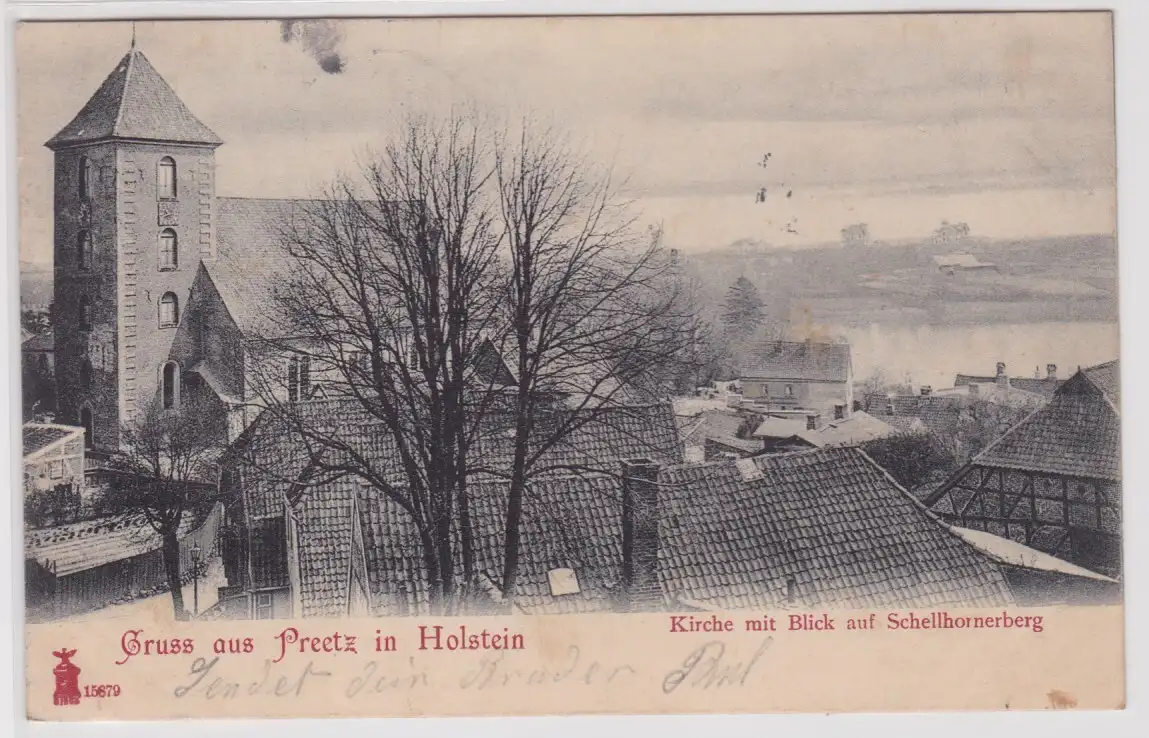 Gruss aus Preetz in Holstein
Kirche mit Blick auf Schellhornerberg
15879
Sendet dein Bruder Paul